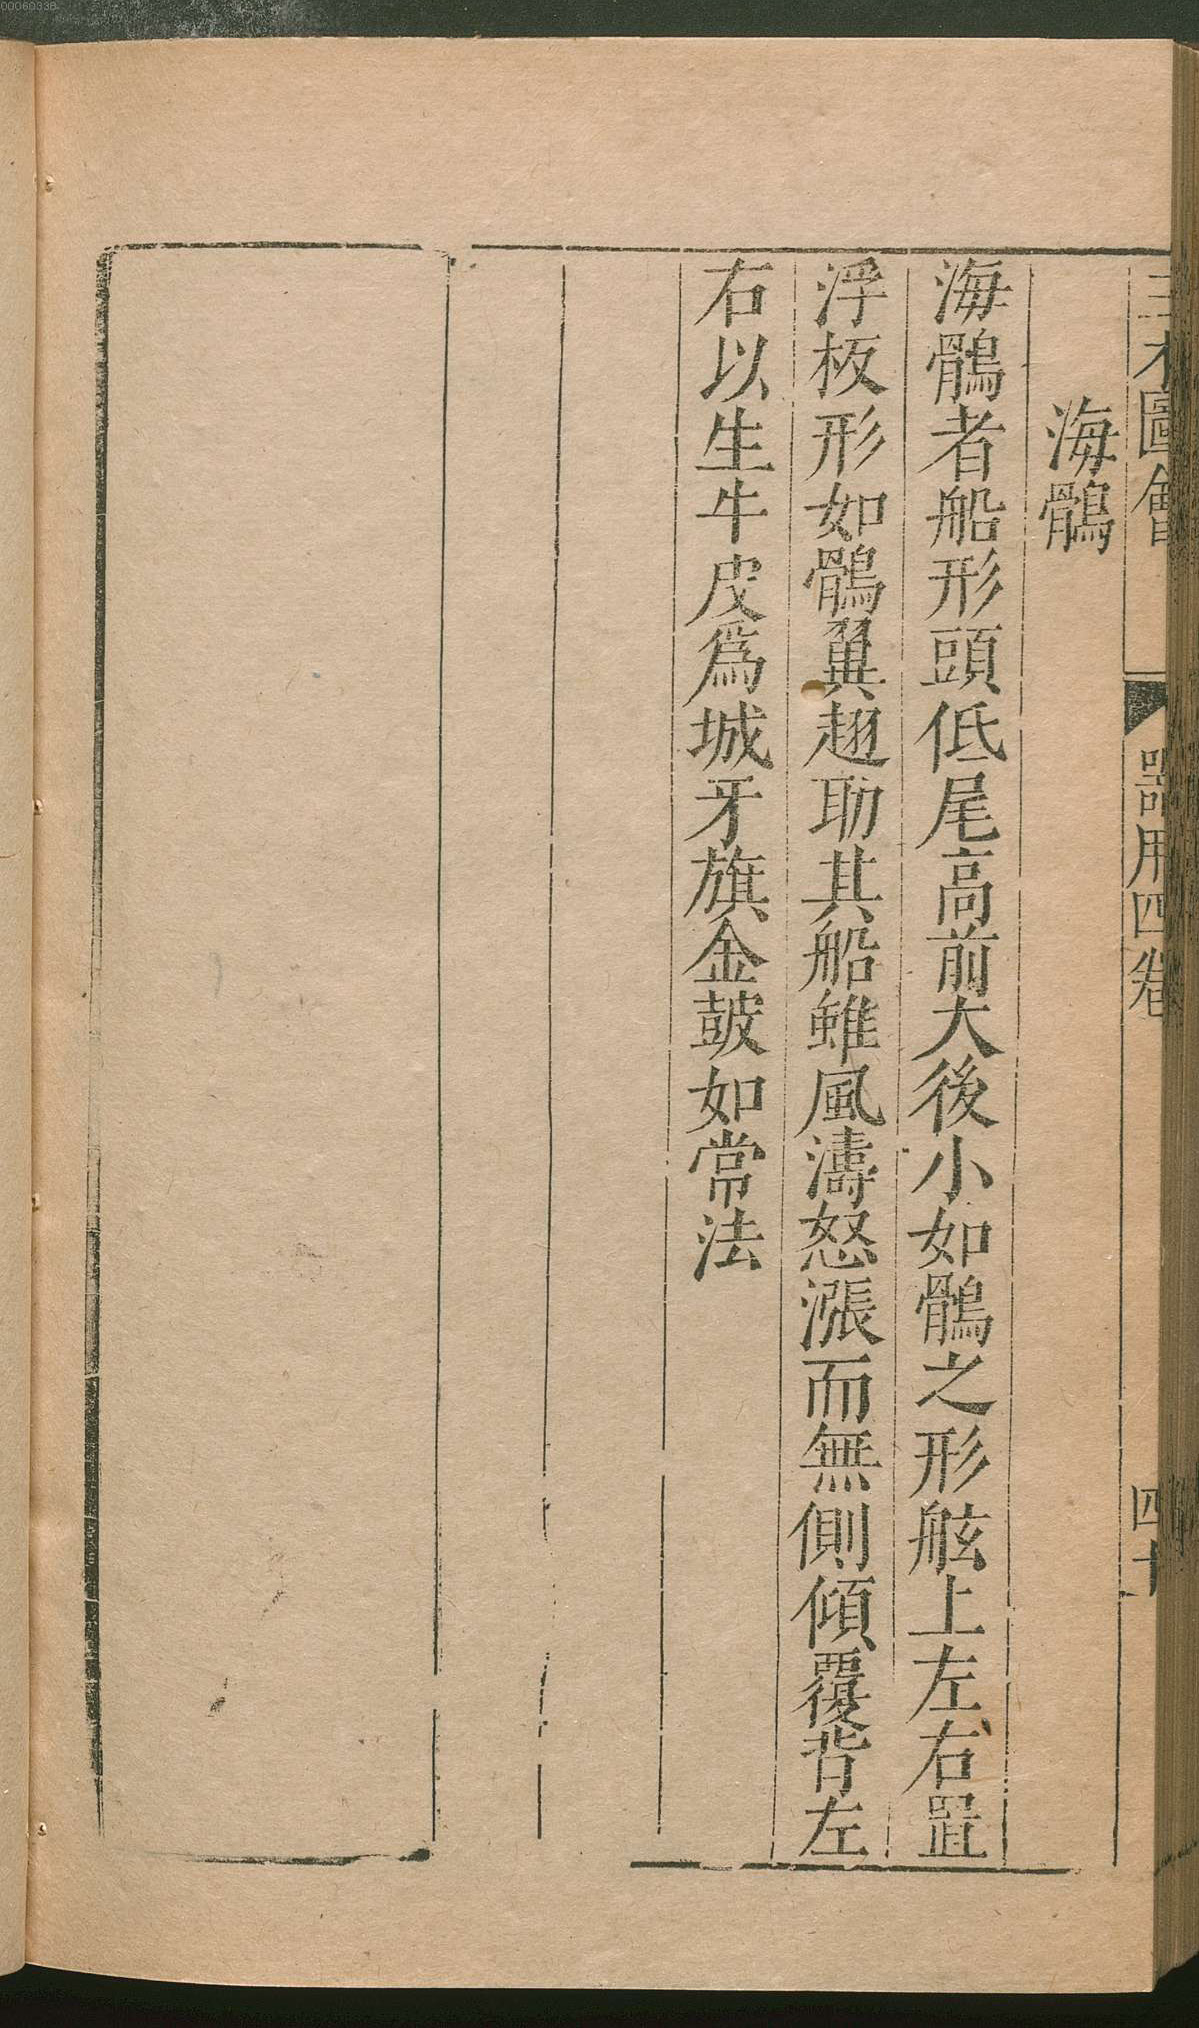 三才圖會
器用四卷
四十
海鶻
海鶻者船形頭低尾高前大後小如鶻之形舷上左右置
浮板形如鶻翼趐助其船雖風濤怒漲而無側傾覆背左
右以生牛皮爲城牙旗金鼓如常法
00060338